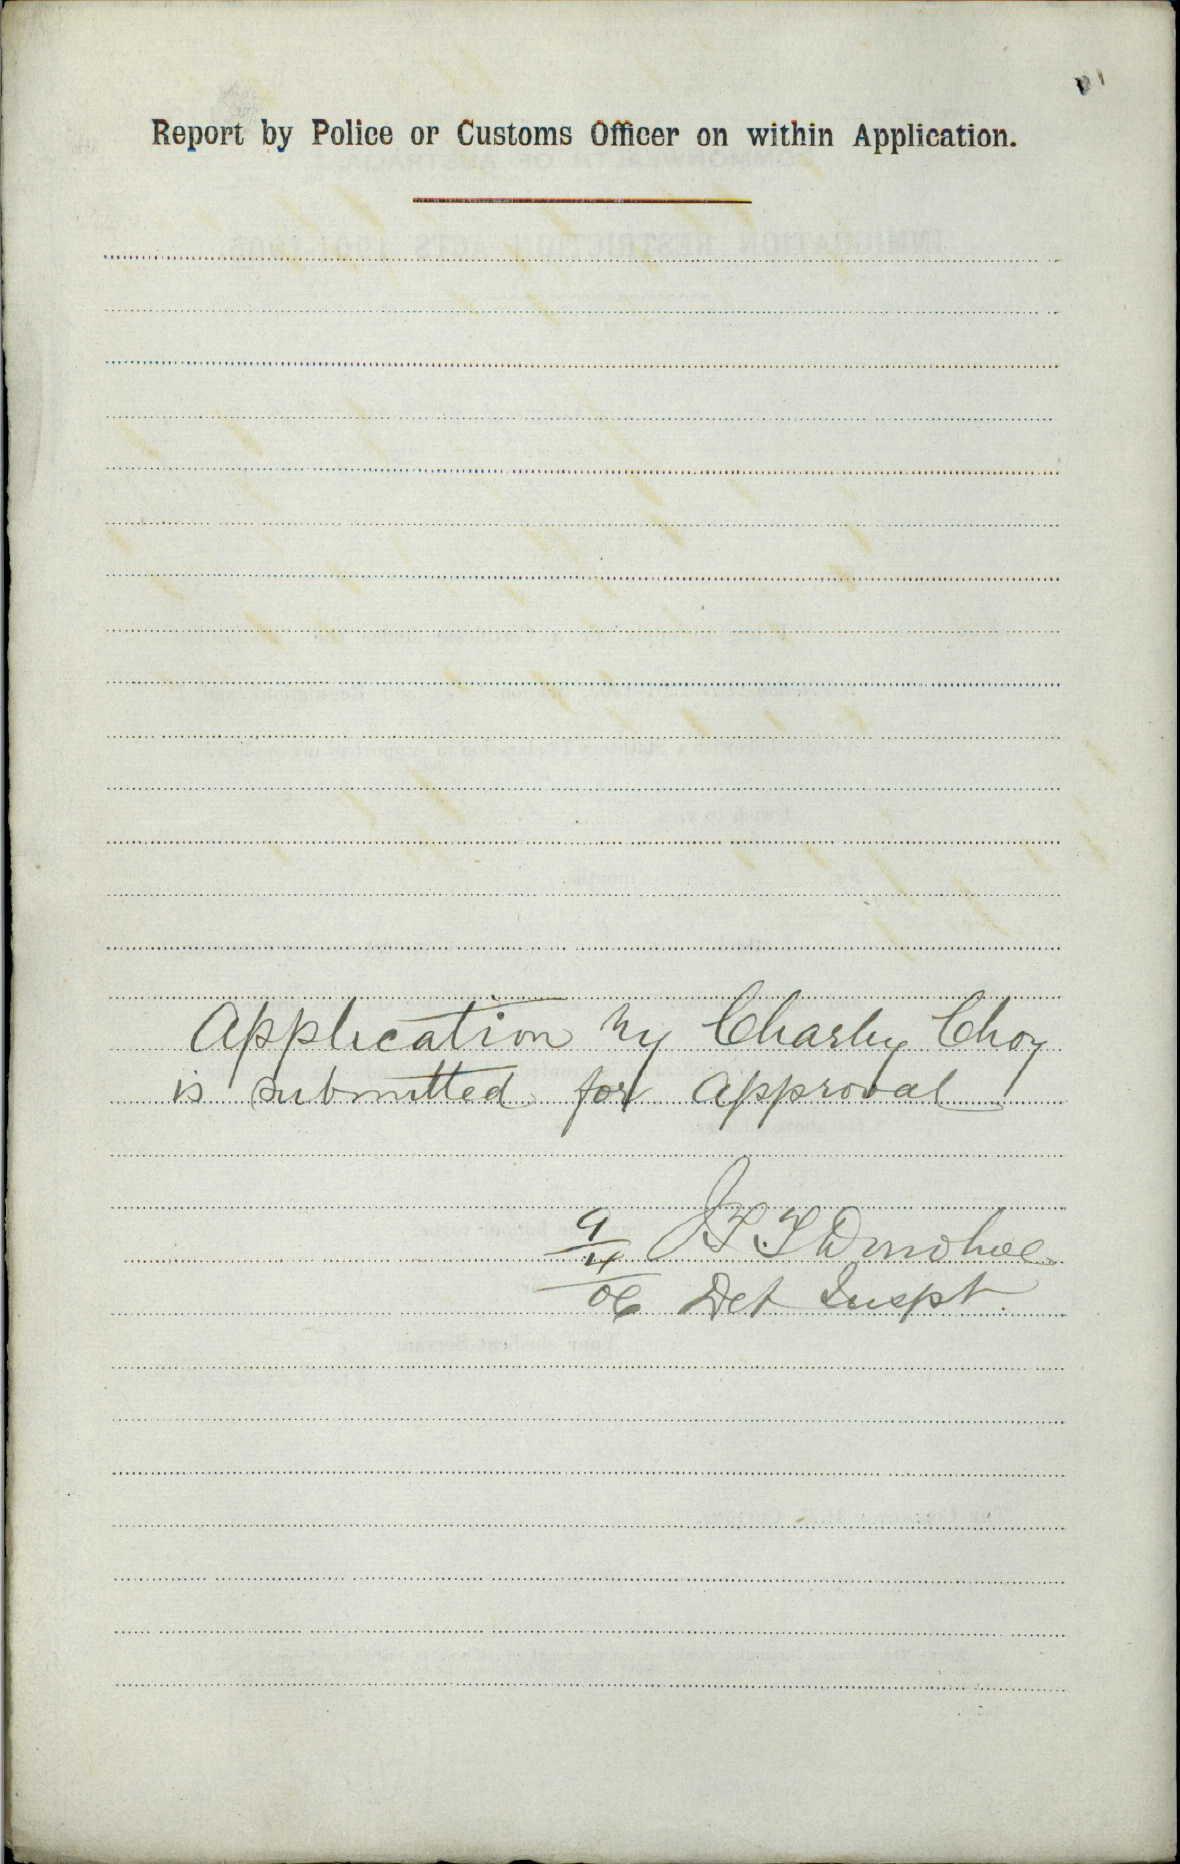 Report by Police or Customs Officer on within Application.
Application by Charley Choy
is submitted for approval
9/4/06 Donohoe
Det Inspt.